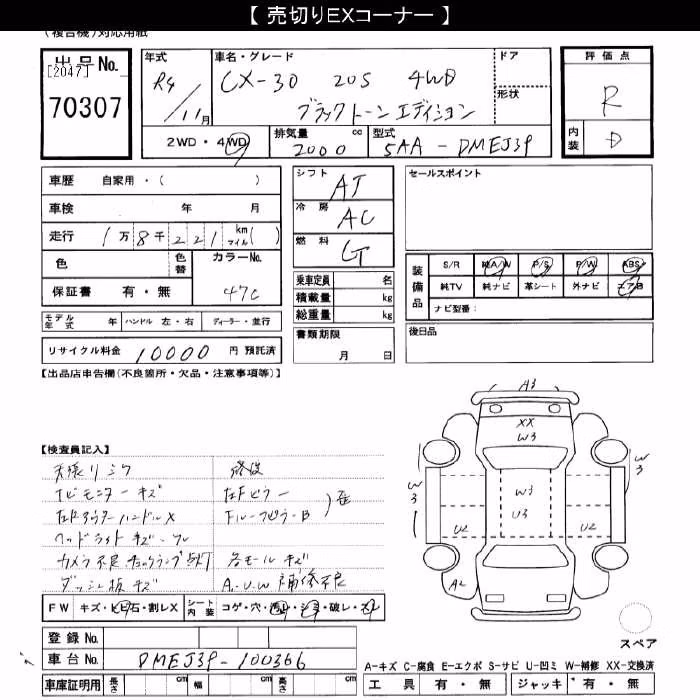 【 売切りEXコーナー 】
(複合機)対応用紙
出品No.
[2047]
70307
年式 R4/11月
車名・グレード CX-30 20S 4WD
ブラックトーンエディション
ドア
形状
評価点
R
内装 D
2WD・4WD
排気量 2000 cc
型式 5AA-DMEJ3P
車歴 自家用・( )
車検 年 月
走行 1万8千221 km マイル( )
色 色替 カラーNo.
47C
保証書 有・無
モデル年式 年 ハンドル 左・右 ディーラー・並行
リサイクル料金 10000 円 預託済
シフト AT
冷房 AC
燃料 G
乗車定員 名
積載量 kg
総重量 kg
書類期限
月 日
セールスポイント
装備品
S/R 純A/W P/S P/W ABS
純TV 純ナビ 革シート 外ナビ エアB
ナビ型番:
後日品
【出品店申告欄(不良箇所・欠品・注意事項等)】
【検査員記入】
天張リシワ
ナビモニターキズ
ヘッドライトキズ・
カメラ不良 チェックランプ点灯
ダッシュ板キズ
修復
左Fピラー
各モールキズ
A.U.W 補修不良
A3
XX
W3
W3
W3
W3
U3
U2
U2
A2
FW キズ・ヒビ石・割レX シート内装 コゲ・穴・汚レ・シミ・破レ・スレ
登録No.
車台No. DMEJ3P-100366
車庫証明用 長さ cm 幅 cm 高さ cm
スペア
A−キズ C−腐食 E−エクボ S−サビ U−凹ミ W−補修 XX−交換済
工具 有・無 ジャッキ 有・無